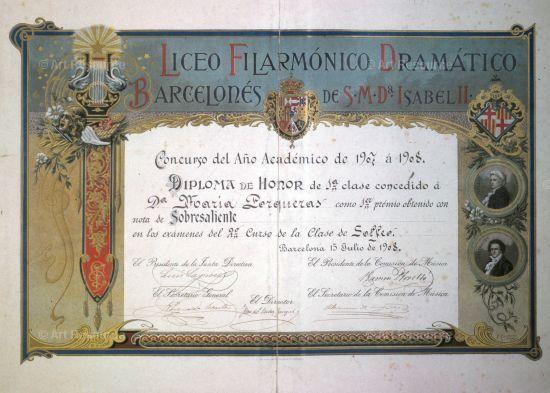 Liceo Filarmónico Dramático
Barcelonés de S.M. Dª Isabel II
Concurso del Año Académico de 1907 á 1908.
Diploma de Honor de 1ª clase concedido á
Dª Maria Porqueras como 1er premio obtenido con
nota de Sobresaliente
en los exámenes del 2º Curso de la Clase de Solfeo.
Barcelona 15 Julio de 1908.
El Presidente de la Junta Directiva
El Presidente de la Comisión de Música
El Secretario General
El Director
El Secretario de la Comisión de Música